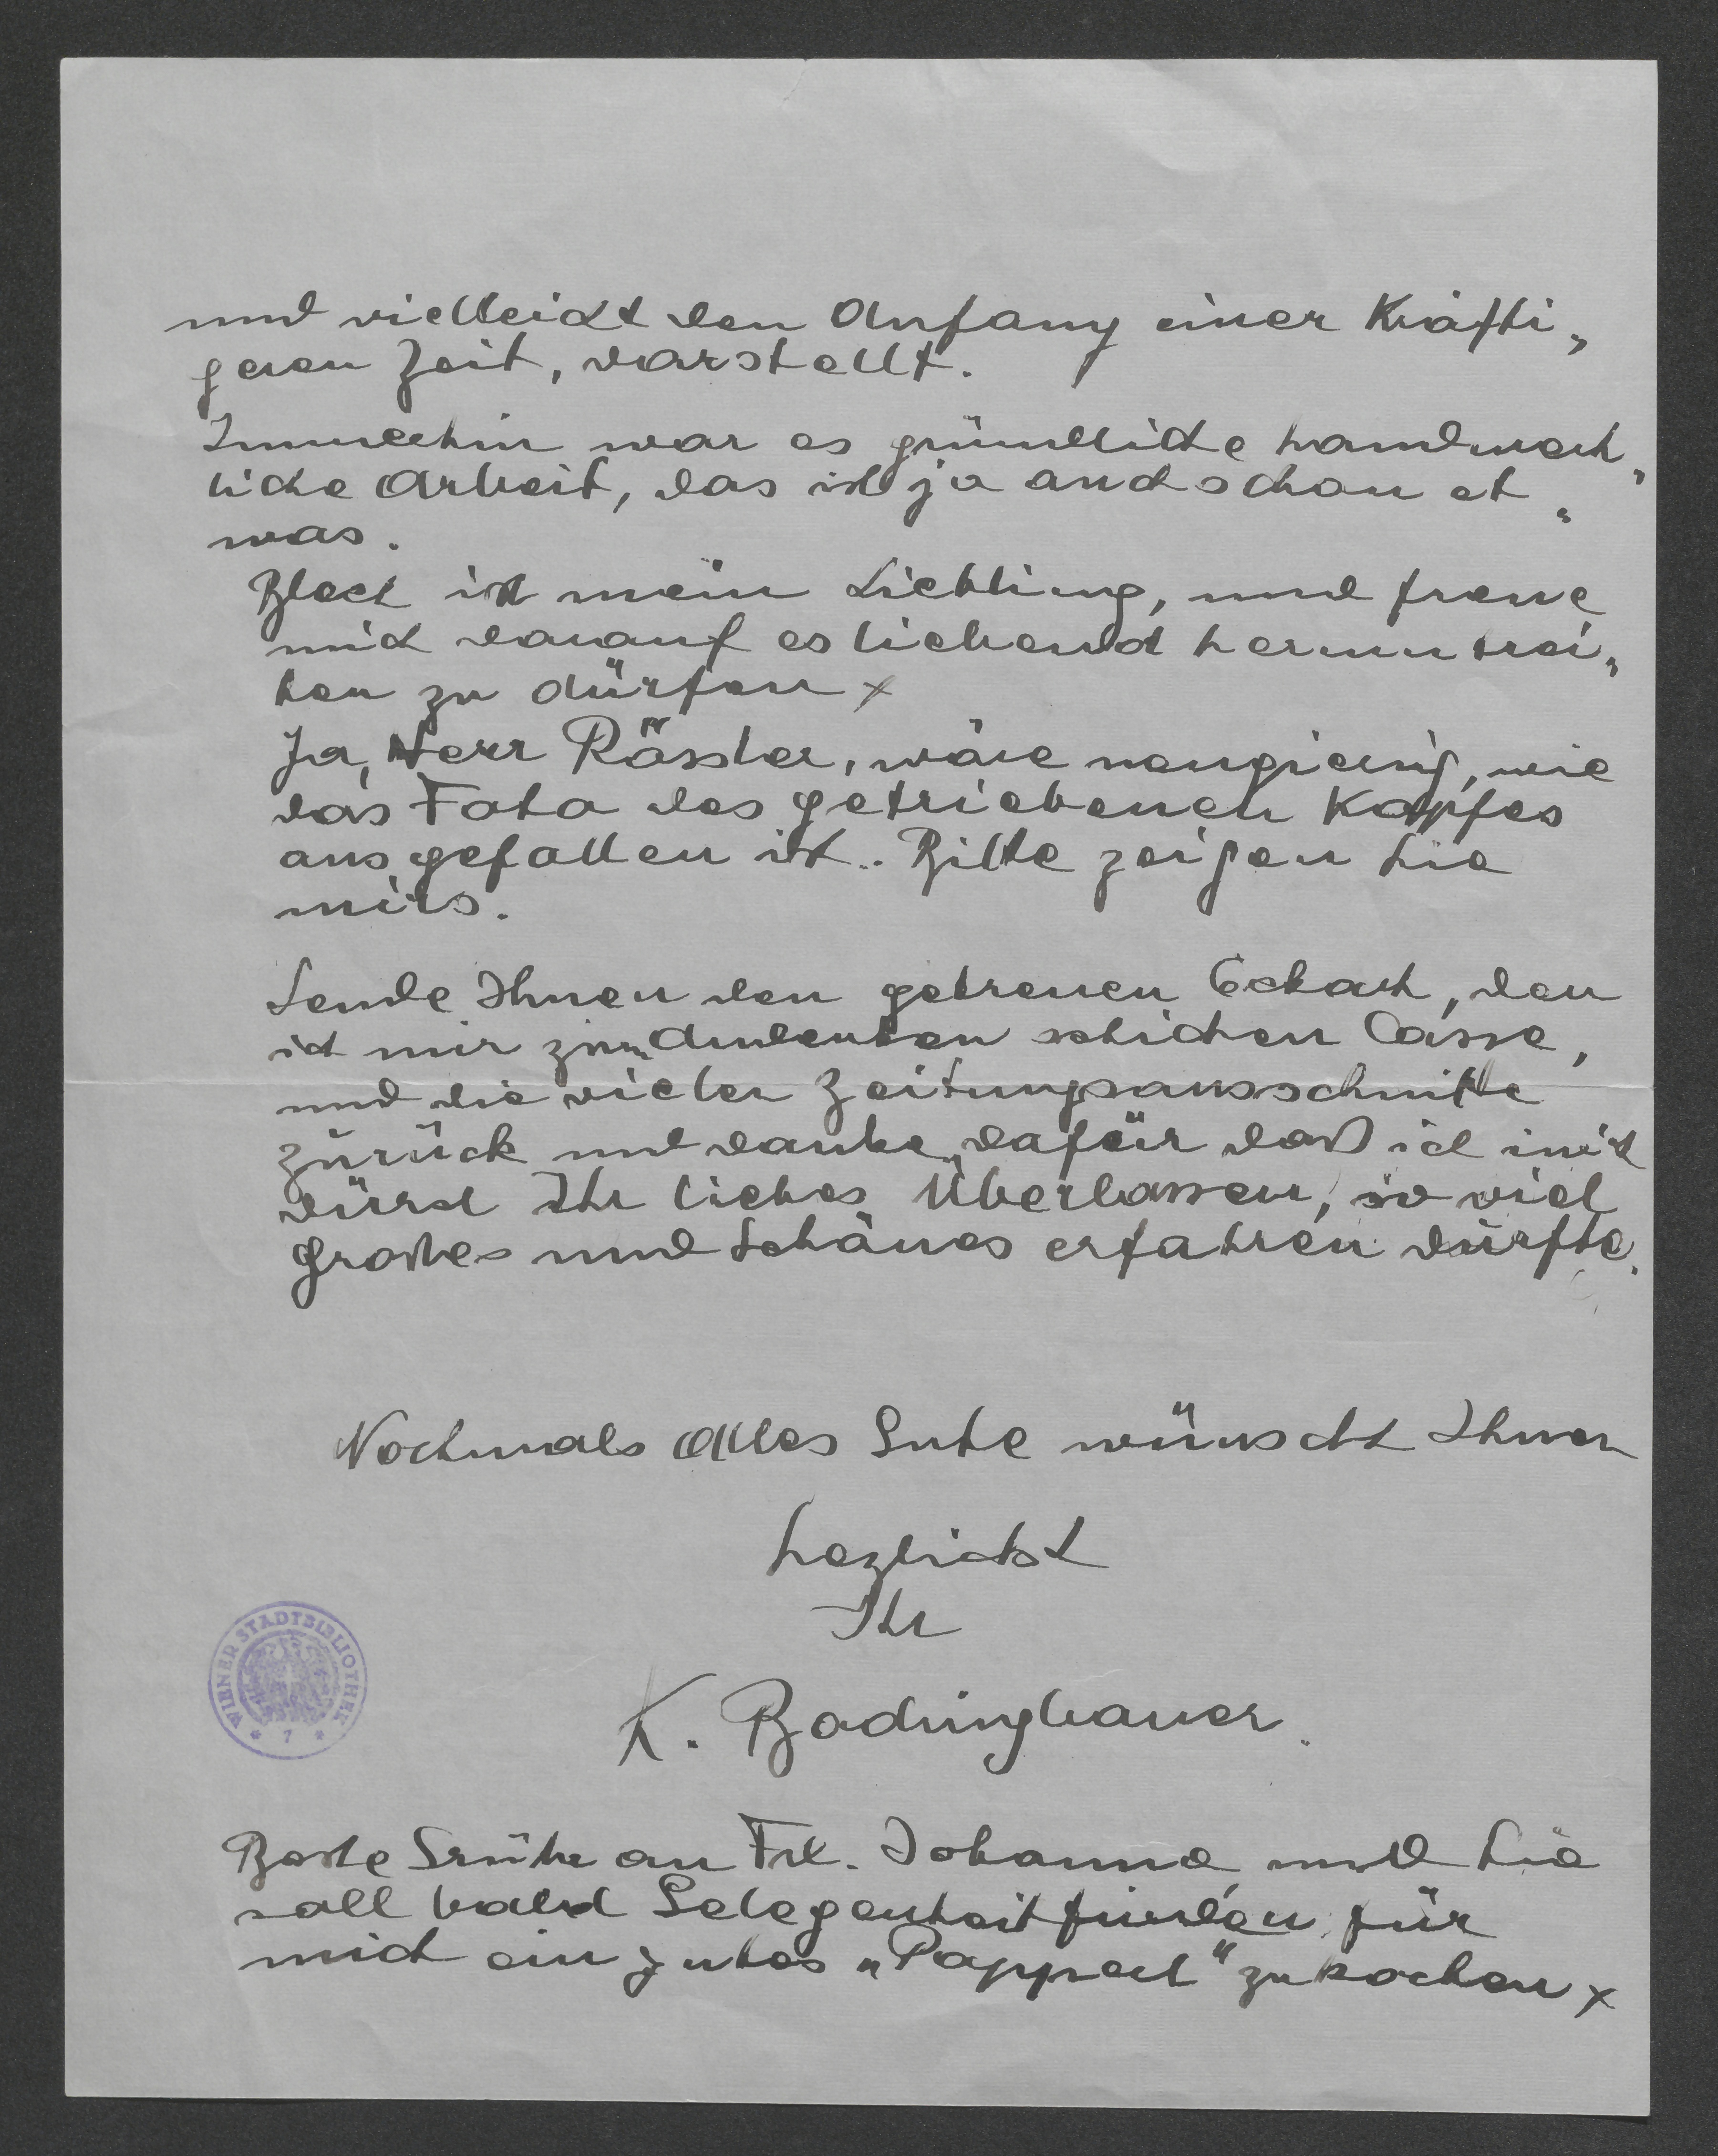 und vielleicht den Anfang einer Kräfti„
geren Zeit, darstellt.
Immerhin war es gründliche handwerk„
liche Arbeit, das ist ja auch schon et„
was.
Blech ist mein Liebling, und freue
mich darauf es liebend herum trei„
ben zu dürfen x
Ja, Herr Rössler, wäre neugierig, wie
das Foto des getriebenen Kopfes
ausgefallen ist.. Bitte zeigen Sie
mirs.
Sende Ihnen den getreuen Eckart, den
ich mir zum Andenken schicken lasse,
und die vielen Zeitungsausschnitte
zurück und danke dafür daß ich mich
durch Ihr liebes Überlassen, so viel
Großes und Schönes erfahren durfte.
Nochmals Alles Gute wünscht Ihnen
hezlichst
Ihr
K. Badringbauer.
WIENER STADTBIBLIOTHEK
* 7 *
Beste Grüße an Frl. Johanna und Sie
soll bald Gelegenheit finden für
mich ein gutes „Papperl" zu kochen x